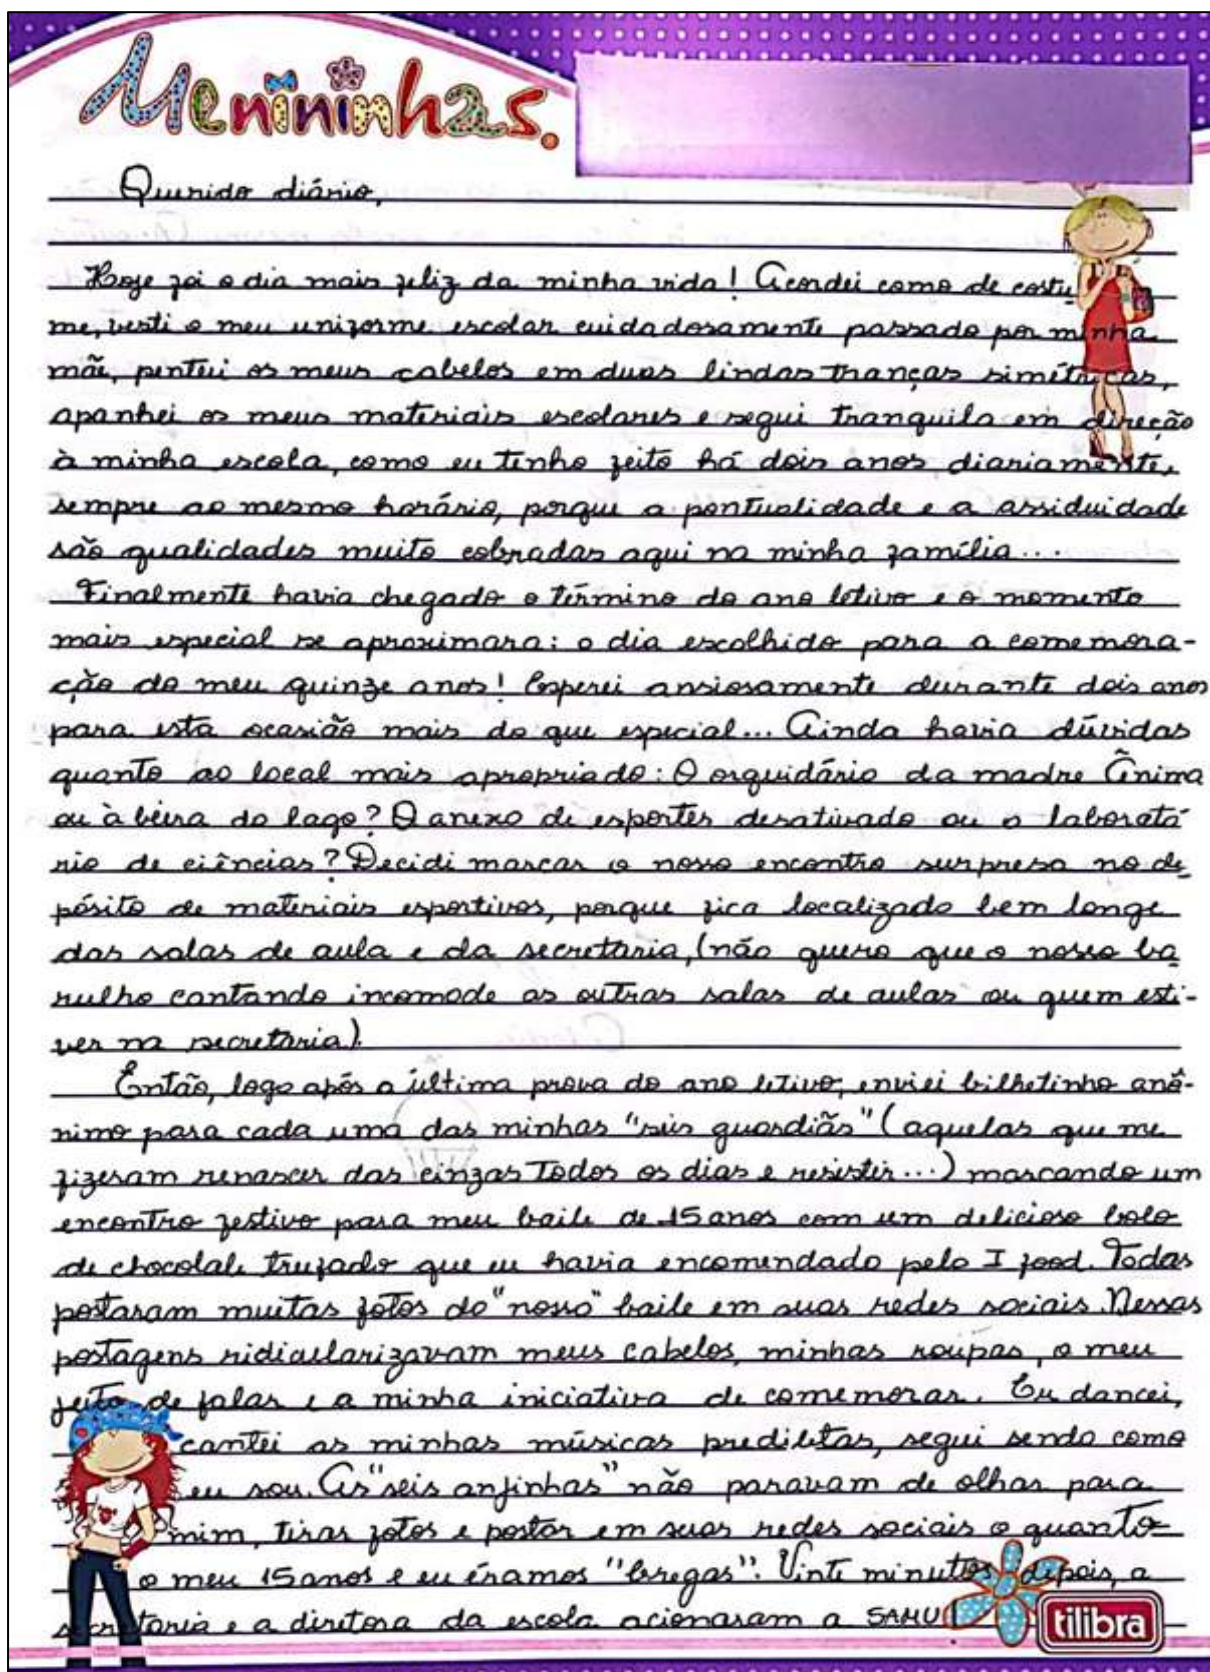 Menininhas.
Querido diário,
Hoje foi o dia mais feliz da minha vida! Acordei como de costu
me, vesti o meu uniforme escolar cuidadosamente passado por minha
mãe, penteei os meus cabelos em duas lindas tranças simétricas,
apanhei os meus materiais escolares e segui tranquila em direção
à minha escola, como eu tenho feito há dois anos diariamente,
sempre ao mesmo horário, porque a pontualidade e a assiduidade
são qualidades muito cobradas aqui na minha família...
Finalmente havia chegado o término do ano letivo e o momento
mais especial se aproximara: o dia escolhido para a comemora-
ção do meu quinze anos! Esperei ansiosamente durante dois anos
para esta ocasião mais do que especial... Ainda havia dúvidas
quanto ao local mais apropriado: O orquidário da madre Ânima
ou à beira do lago? O anexo de esportes desativado ou o laborató
rio de ciências? Decidi marcar o nosso encontro surpresa no de-
pósito de materiais esportivos, porque fica localizado bem longe
das salas de aula e da secretaria, (não quero que o nosso ba-
rulho cantando incomode as outras salas de aulas ou quem esti-
ver na secretaria).
Então, logo após a última prova do ano letivo, enviei bilhetinho anô-
nimo para cada uma das minhas "seis guardiãs" (aquelas que me
fizeram renascer das cinzas todos os dias e resistir...) marcando um
encontro festivo para meu baile de 15 anos com um delicioso bolo
de chocolate trufado que eu havia encomendado pelo I food. Todas
postaram muitas fotos do "nosso" baile em suas redes sociais. Nessas
postagens ridicularizavam meus cabelos, minhas roupas, o meu
jeito de falar e a minha iniciativa de comemorar. Eu dancei,
cantei as minhas músicas prediletas, segui sendo como
eu sou. As "seis anjinhas" não paravam de olhar para
mim, tirar fotos e postar em suas redes sociais o quanto
o meu 15 anos e eu éramos "bregas". Vinte minutos depois, a
secretaria e a diretora da escola acionaram a SAMU
tilibra